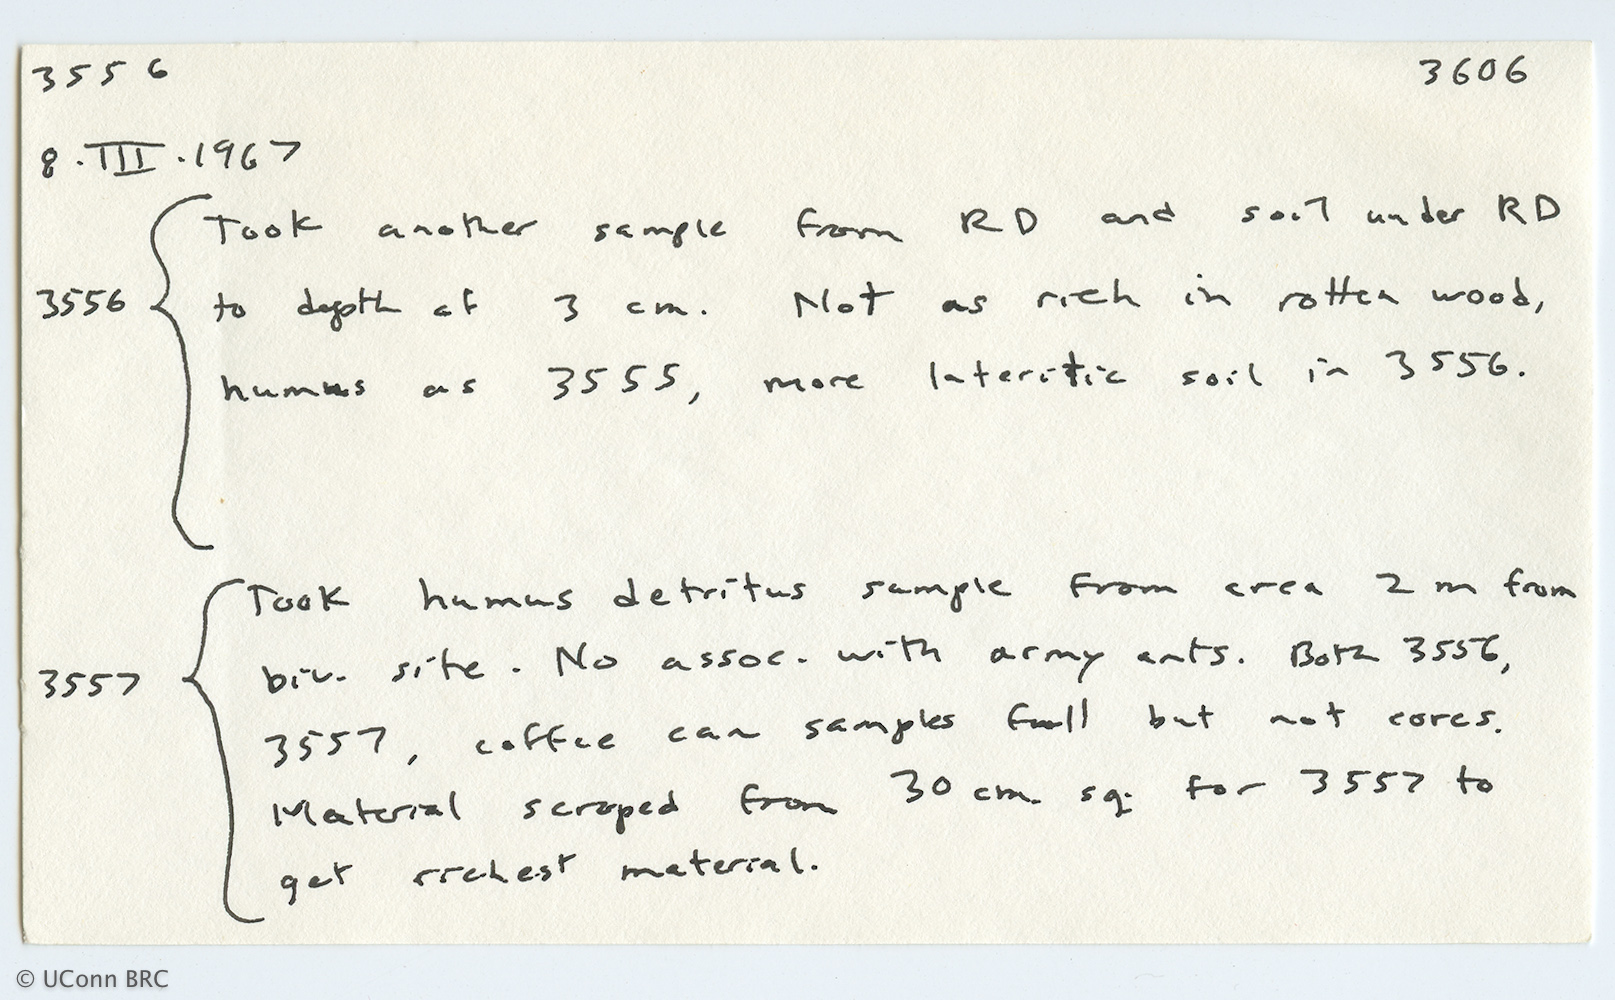 3556 3606
8.III.1967
Took another sample from RD and soil under RD
3556 to depth of 3 cm. Not as rich in rotten wood,
humus as 3555, more lateritic soil in 3556.
Took humus detritus sample from area 2 m from
biv. site. No assoc. with army ants. Both 3556,
3557
3557, coffee can samples full but not cores.
Material scraped from 30 cm. sq. for 3557 to
get richest material.
© UConn BRC